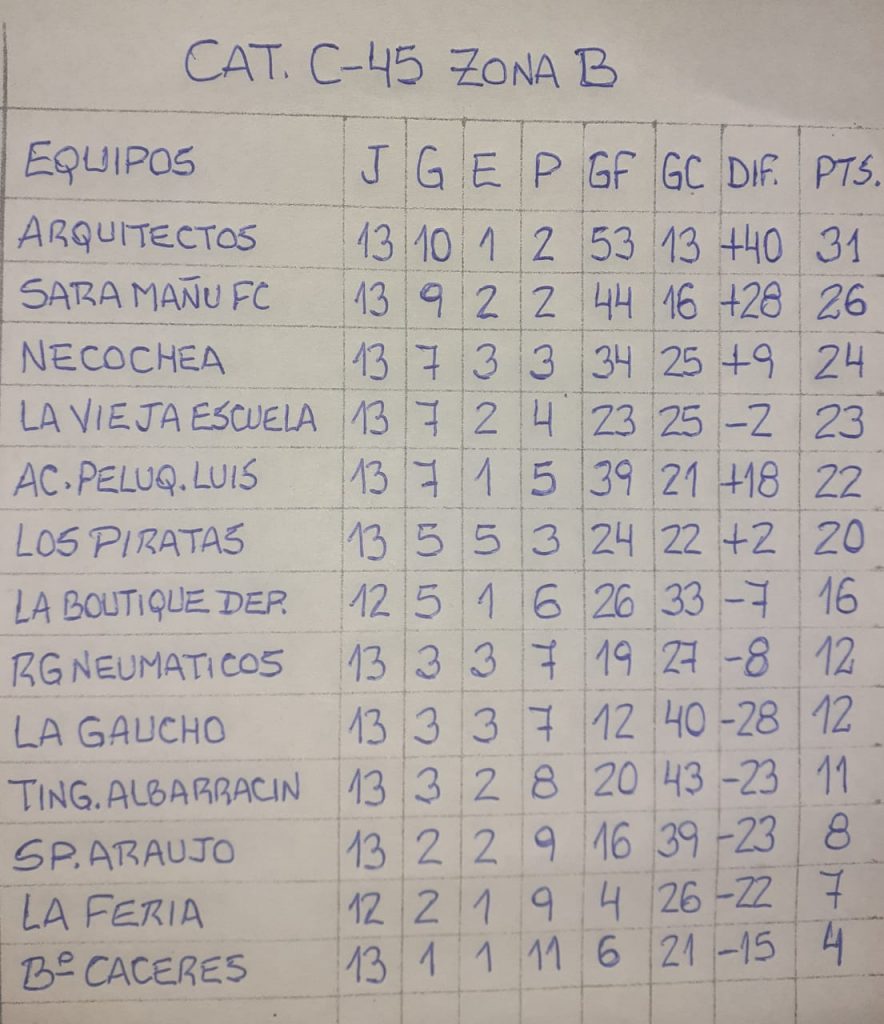 CAT. C-45 ZONA B
EQUIPOS J G E P GF GC DIF. PTS.
ARQUITECTOS 13 10 1 2 53 13 +40 31
SARA MAÑU FC 13 9 2 2 44 16 +28 26
NECOCHEA 13 7 3 3 34 25 +9 24
LA VIEJA ESCUELA 13 7 2 4 23 25 -2 23
AC. PELUQ. LUIS 13 7 1 5 39 21 +18 22
LOS PIRATAS 13 5 5 3 24 22 +2 20
LA BOUTIQUE DEP. 12 5 1 6 26 33 -7 16
RG NEUMATICOS 13 3 3 7 19 27 -8 12
LA GAUCHO 13 3 3 7 12 40 -28 12
TING. ALBARRACIN 13 3 2 8 20 43 -23 11
SP. ARAUJO 13 2 2 9 16 39 -23 8
LA FERIA 12 2 1 9 4 26 -22 7
Bº CACERES 13 1 1 11 6 21 -15 4